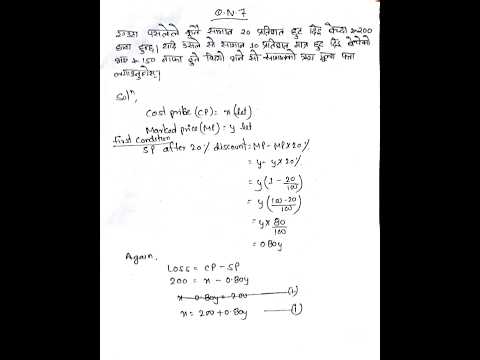 Q.N.7
एउटा पसलेले कुनै सामान 20 प्रतिशत छुट दिई बेच्दा रु 200
घाटा हुन्छ। यदि उसले सो सामान 10 प्रतिशत मात्र छुट दिई बेचेको
भए रु 150 नाफा हुने थियो भने सो सामानको क्रय मूल्य पत्ता
लगाउनुहोस्।
Solⁿ,
Cost price (CP) = x (let)
Marked price (MP) = y let
First Condition
SP after 20% discount = MP - MP×20%
= y - y×20%
= y(1 - 20/100)
= y(100-20/100)
= y × 80/100
= 0.80y
Again,
Loss = CP - SP
200 = x - 0.80y
x - 0.80y = 200 (i)
x = 200 + 0.80y (i)